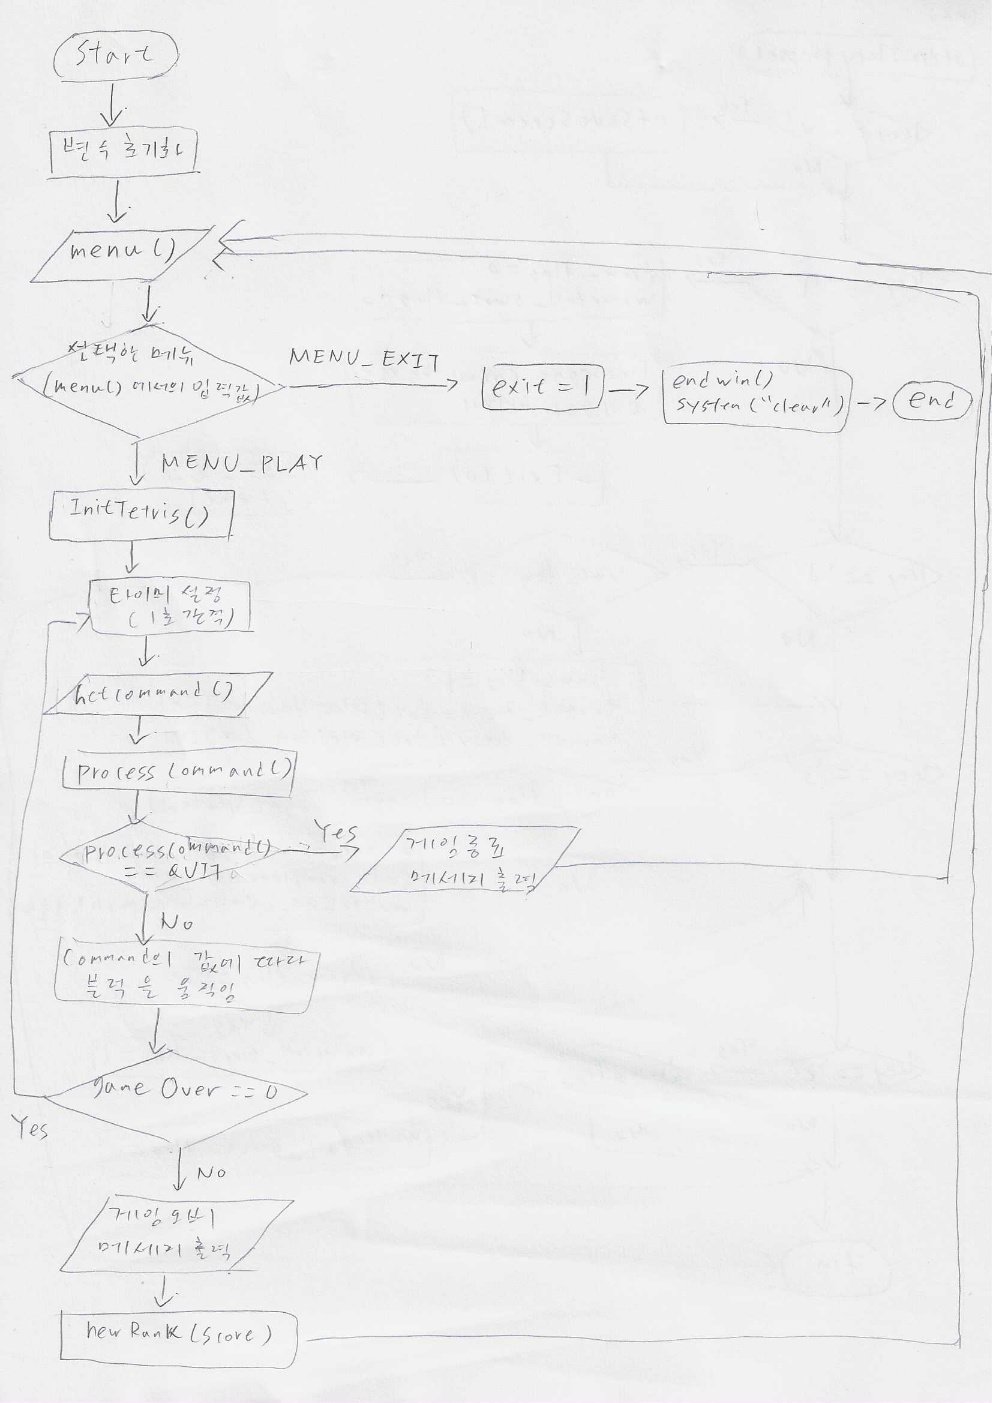 Start
변수 초기화
menu()
선택한 메뉴
(menu() 에서의 입력값)
MENU_EXIT
exit = 1
endwin()
system("clear")
end
MENU_PLAY
InitTetris()
타이머 설정
(1초 간격)
GetCommand()
ProcessCommand()
ProcessCommand()
== QUIT
Yes
게임종료
메세지 출력
No
Command의 값에 따라
블럭을 움직임
gameOver == 0
Yes
No
게임오버
메세지 출력
newRank(score)